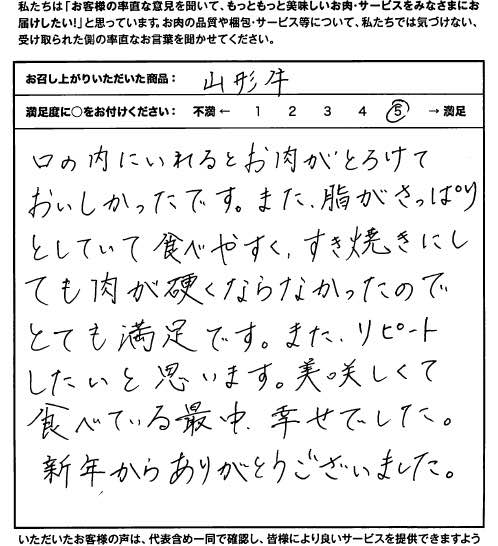 私たちは「お客様の率直な意見を聞いて、もっともっと美味しいお肉・サービスをみなさまにお
届けしたい!」と思っています。お肉の品質や梱包・サービス等について、私たちでは気づけない、
受け取られた側の率直なお言葉を聞かせてください。
お召し上がりいただいた商品： 山形牛
満足度に○をお付けください： 不満 ← 1 2 3 4 5 → 満足
口の内にいれるとお肉がとろけて
おいしかったです。また、脂がさっぱり
としていて食べやすく、すき焼きにし
ても肉が硬くならなかったので
とても満足です。また、リピート
したいと思います。美味しくて
食べている最中、幸せでした。
新年からありがとうございました。
いただいたお客様の声は、代表含め一同で確認し、皆様により良いサービスを提供できますよう